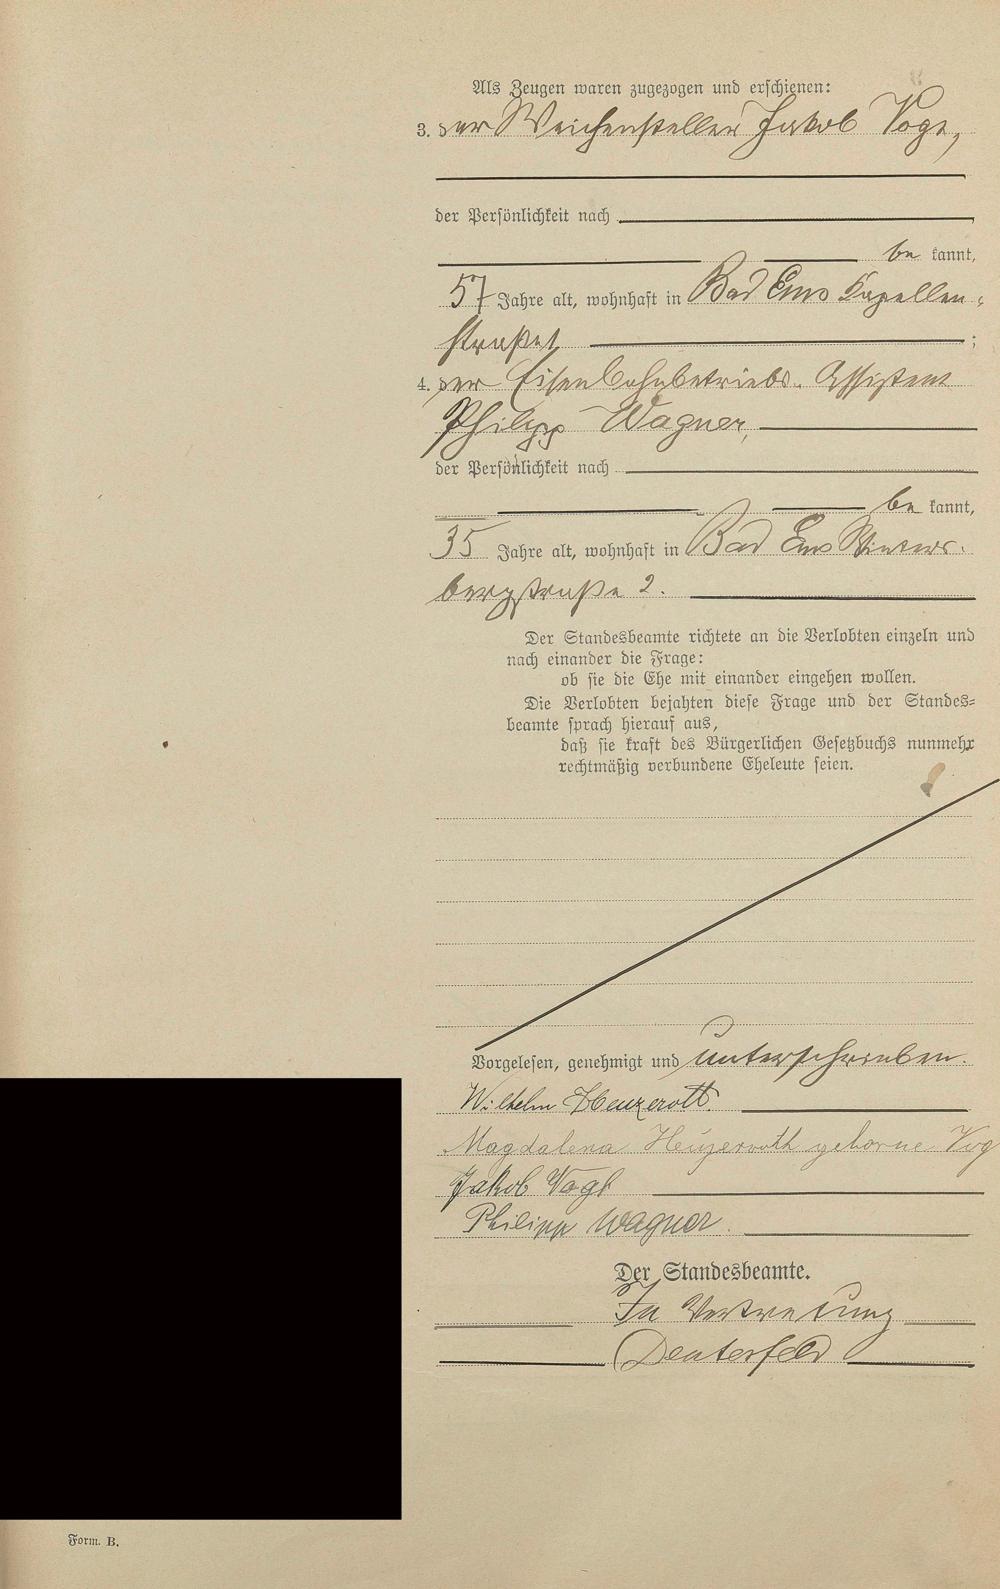 Als Zeugen waren zugezogen und erschienen:
3. der Weichensteller Jakob Vogt,
der Persönlichkeit nach
be kannt,
57 Jahre alt, wohnhaft in Bad Ems Kapellen-
straße ;
4. der Eisenbahnbetriebs-Assistent
Philipp Wagner,
der Persönlichkeit nach
be kannt,
35 Jahre alt, wohnhaft in Bad Ems Winters-
bergstraße 2.
Der Standesbeamte richtete an die Verlobten einzeln und
nach einander die Frage:
ob sie die Ehe mit einander eingehen wollen.
Die Verlobten bejahten diese Frage und der Standes-
beamte sprach hierauf aus,
daß sie kraft des Bürgerlichen Gesetzbuchs nunmehr
rechtmäßig verbundene Eheleute seien.
Vorgelesen, genehmigt und unterschrieben.
Wilhelm Heuzeroth.
Magdalena Heuzeroth geborne Vog
Jakob Vogt
Philipp Wagner.
Der Standesbeamte.
In Vertretung
Form. B.